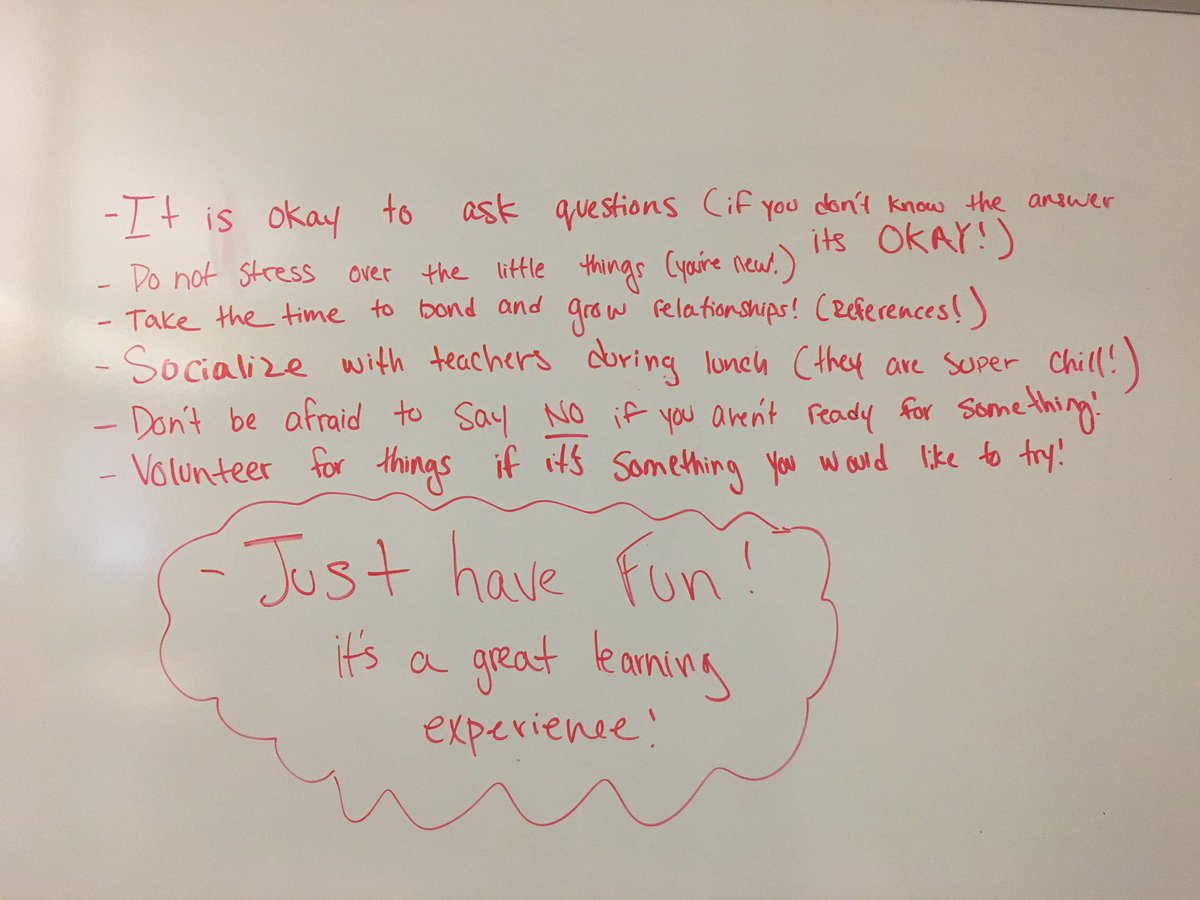 - It is okay to ask questions (if you don't know the answer
its OKAY!)
- Do not stress over the little things (you're new!)
- Take the time to bond and grow relationships! (References!)
- Socialize with teachers during lunch (they are super chill!)
- Don't be afraid to say NO if you aren't ready for something!
- Volunteer for things if it's something you would like to try!
- Just have Fun!
it's a great learning
experience!